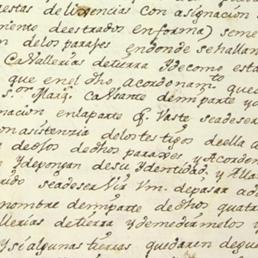 uestas de licencias con asignacion
miente de estrados en forma) seme
n delos parajes en donde se hallan
Cavallerias de tierra Y de como esta
que en el dho acordonamto que
s.or Marq. Ca Usante demi parte y
nacion en la parte q. Vaste sea de ser
con asistencia delos tes tigos de ella a
de dhos parajes, y Acordon
Y depongan de su Identidad, y Alla
rido sea de ser Vir Vm. de pasar ad
nombre demi parte de dhos quatr
llerias de tierra y de medir me los y
Y si algunas tierras quedaren de gue